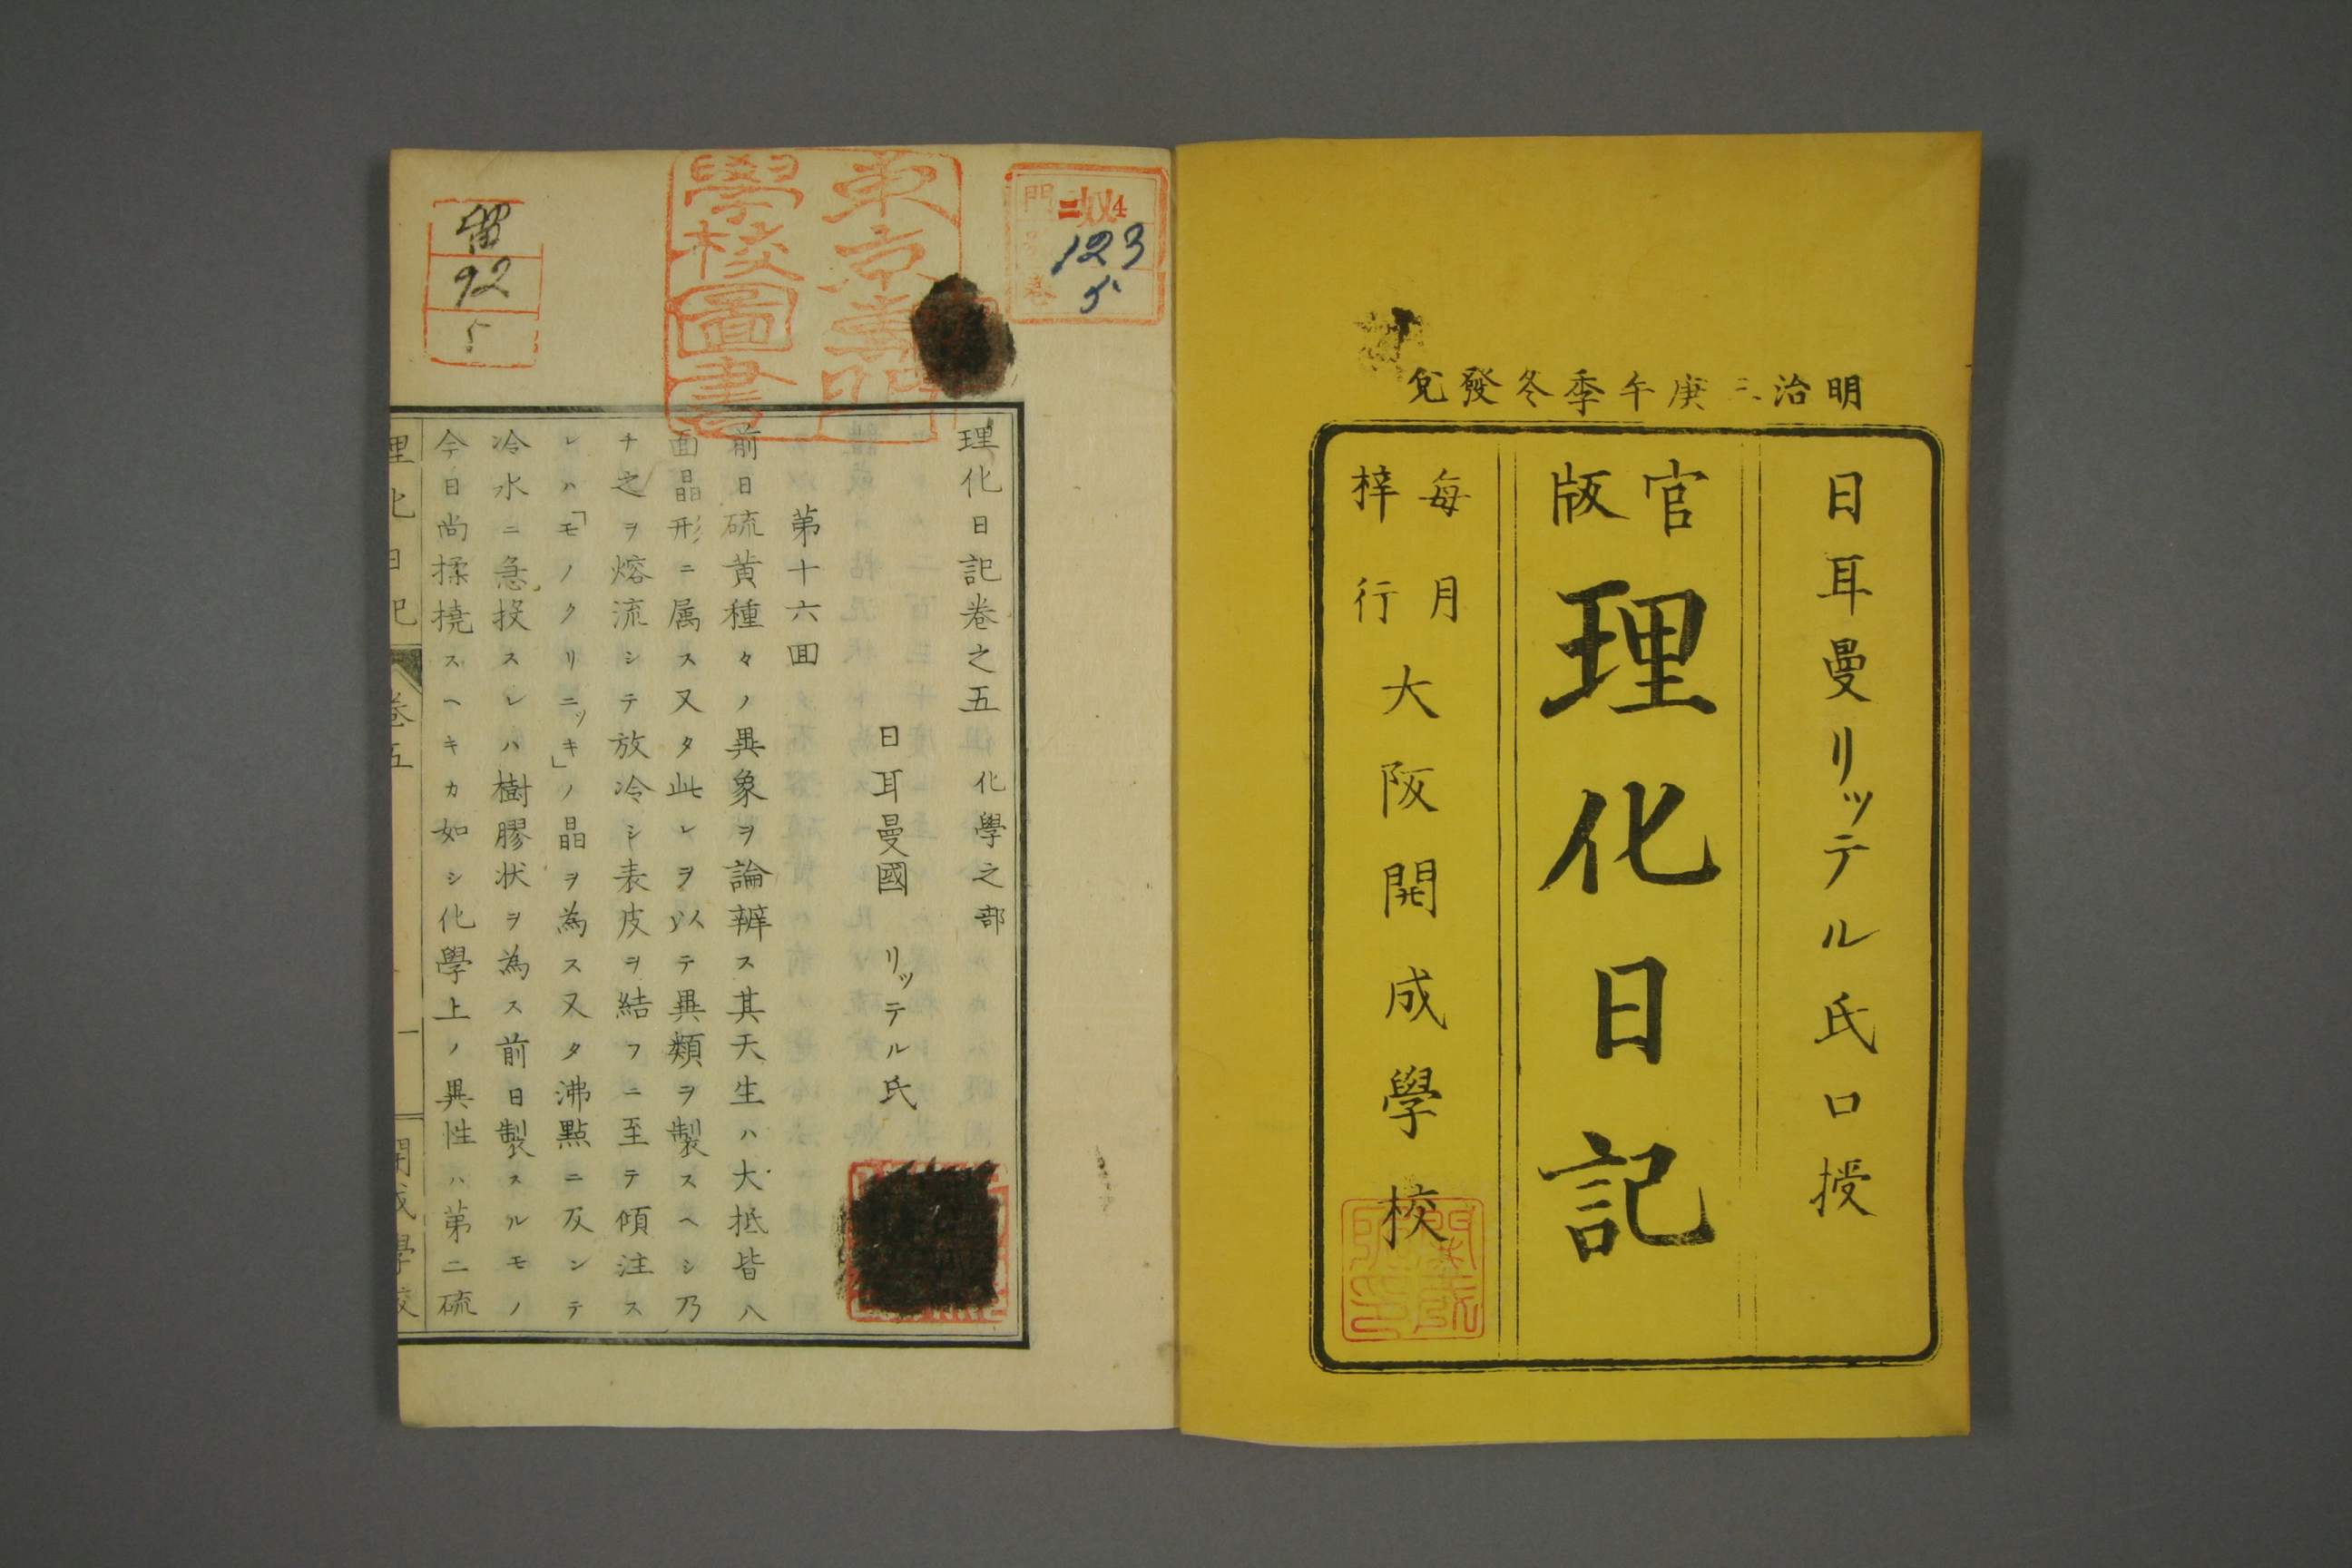 明治三庚午季冬發兌
日耳曼リッテル氏口授
官版
理化日記
毎月梓行
大阪開成學校
4
123
5
東京書
學校圖書
留
92
5
理化日記卷之五 化學之部
日耳曼國 リッテル氏
第十六回
前日硫黄種々ノ異象ヲ論辨ス其天生ハ大抵皆八
面晶形ニ属ス又タ此レヲ以テ異類ヲ製スヘシ乃
チ之ヲ熔流シテ放冷シ表皮ヲ結フニ至テ傾注ス
レハ「モノクリニッキ」ノ晶ヲ為ス又タ沸點ニ及ンテ
冷水ニ急投スレハ樹膠状ヲ為ス前日製スルモノ
今日尚揉撓スヘキカ如シ化學上ノ異性ハ第二硫
理化日記
卷五
一
開成學校